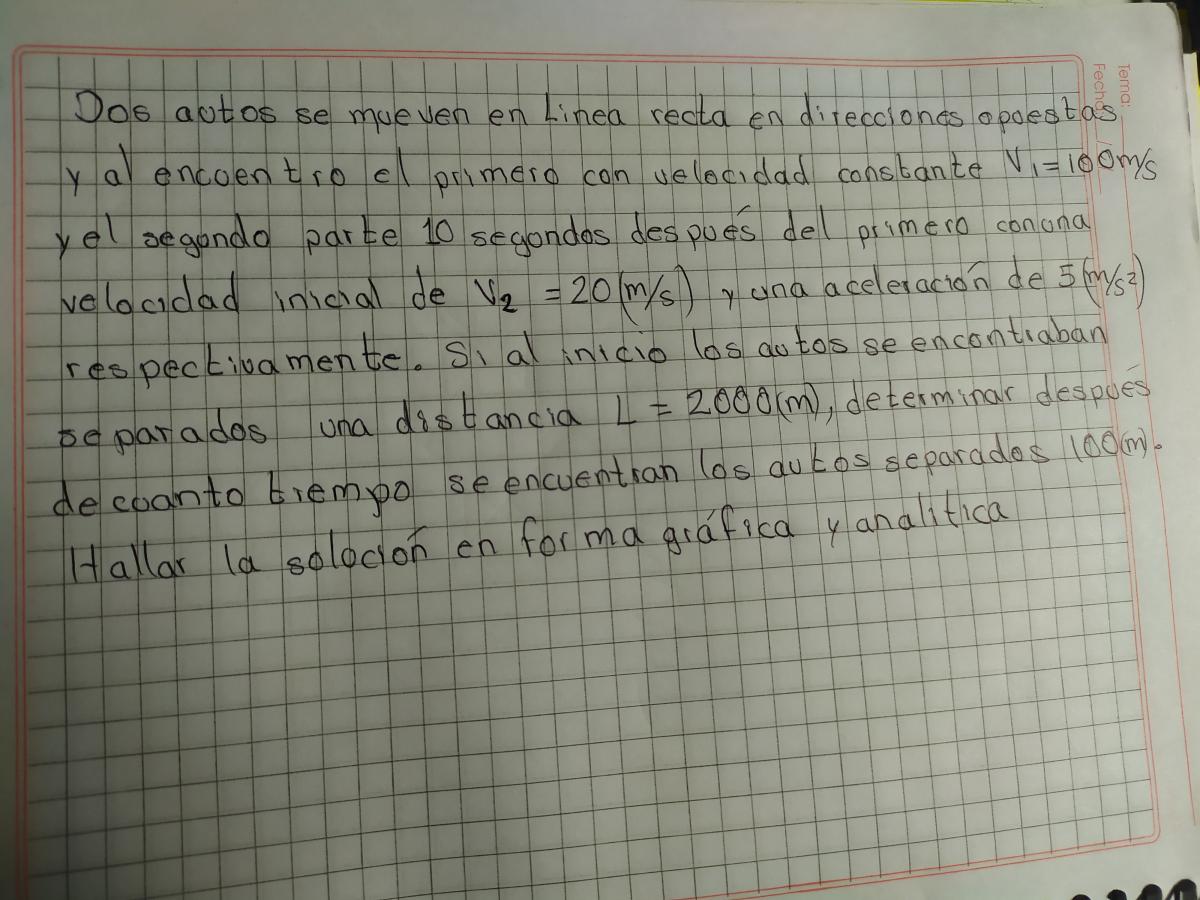 Dos autos se mueven en Linea recta en direcciones opuestas
y al encuentro el primero con velocidad constante V₁=100m/s
y el segundo parte 10 segundos después del primero con una
velocidad inicial de V₂ = 20(m/s) y una aceleración de 5(m/s²)
respectivamente. Si al inicio los autos se encontraban
separados una distancia L = 2000(m), determinar después
de cuanto tiempo se encuentran los autos separados 100(m).
Hallar la solución en forma gráfica y analitica
Tema:
Fecha: